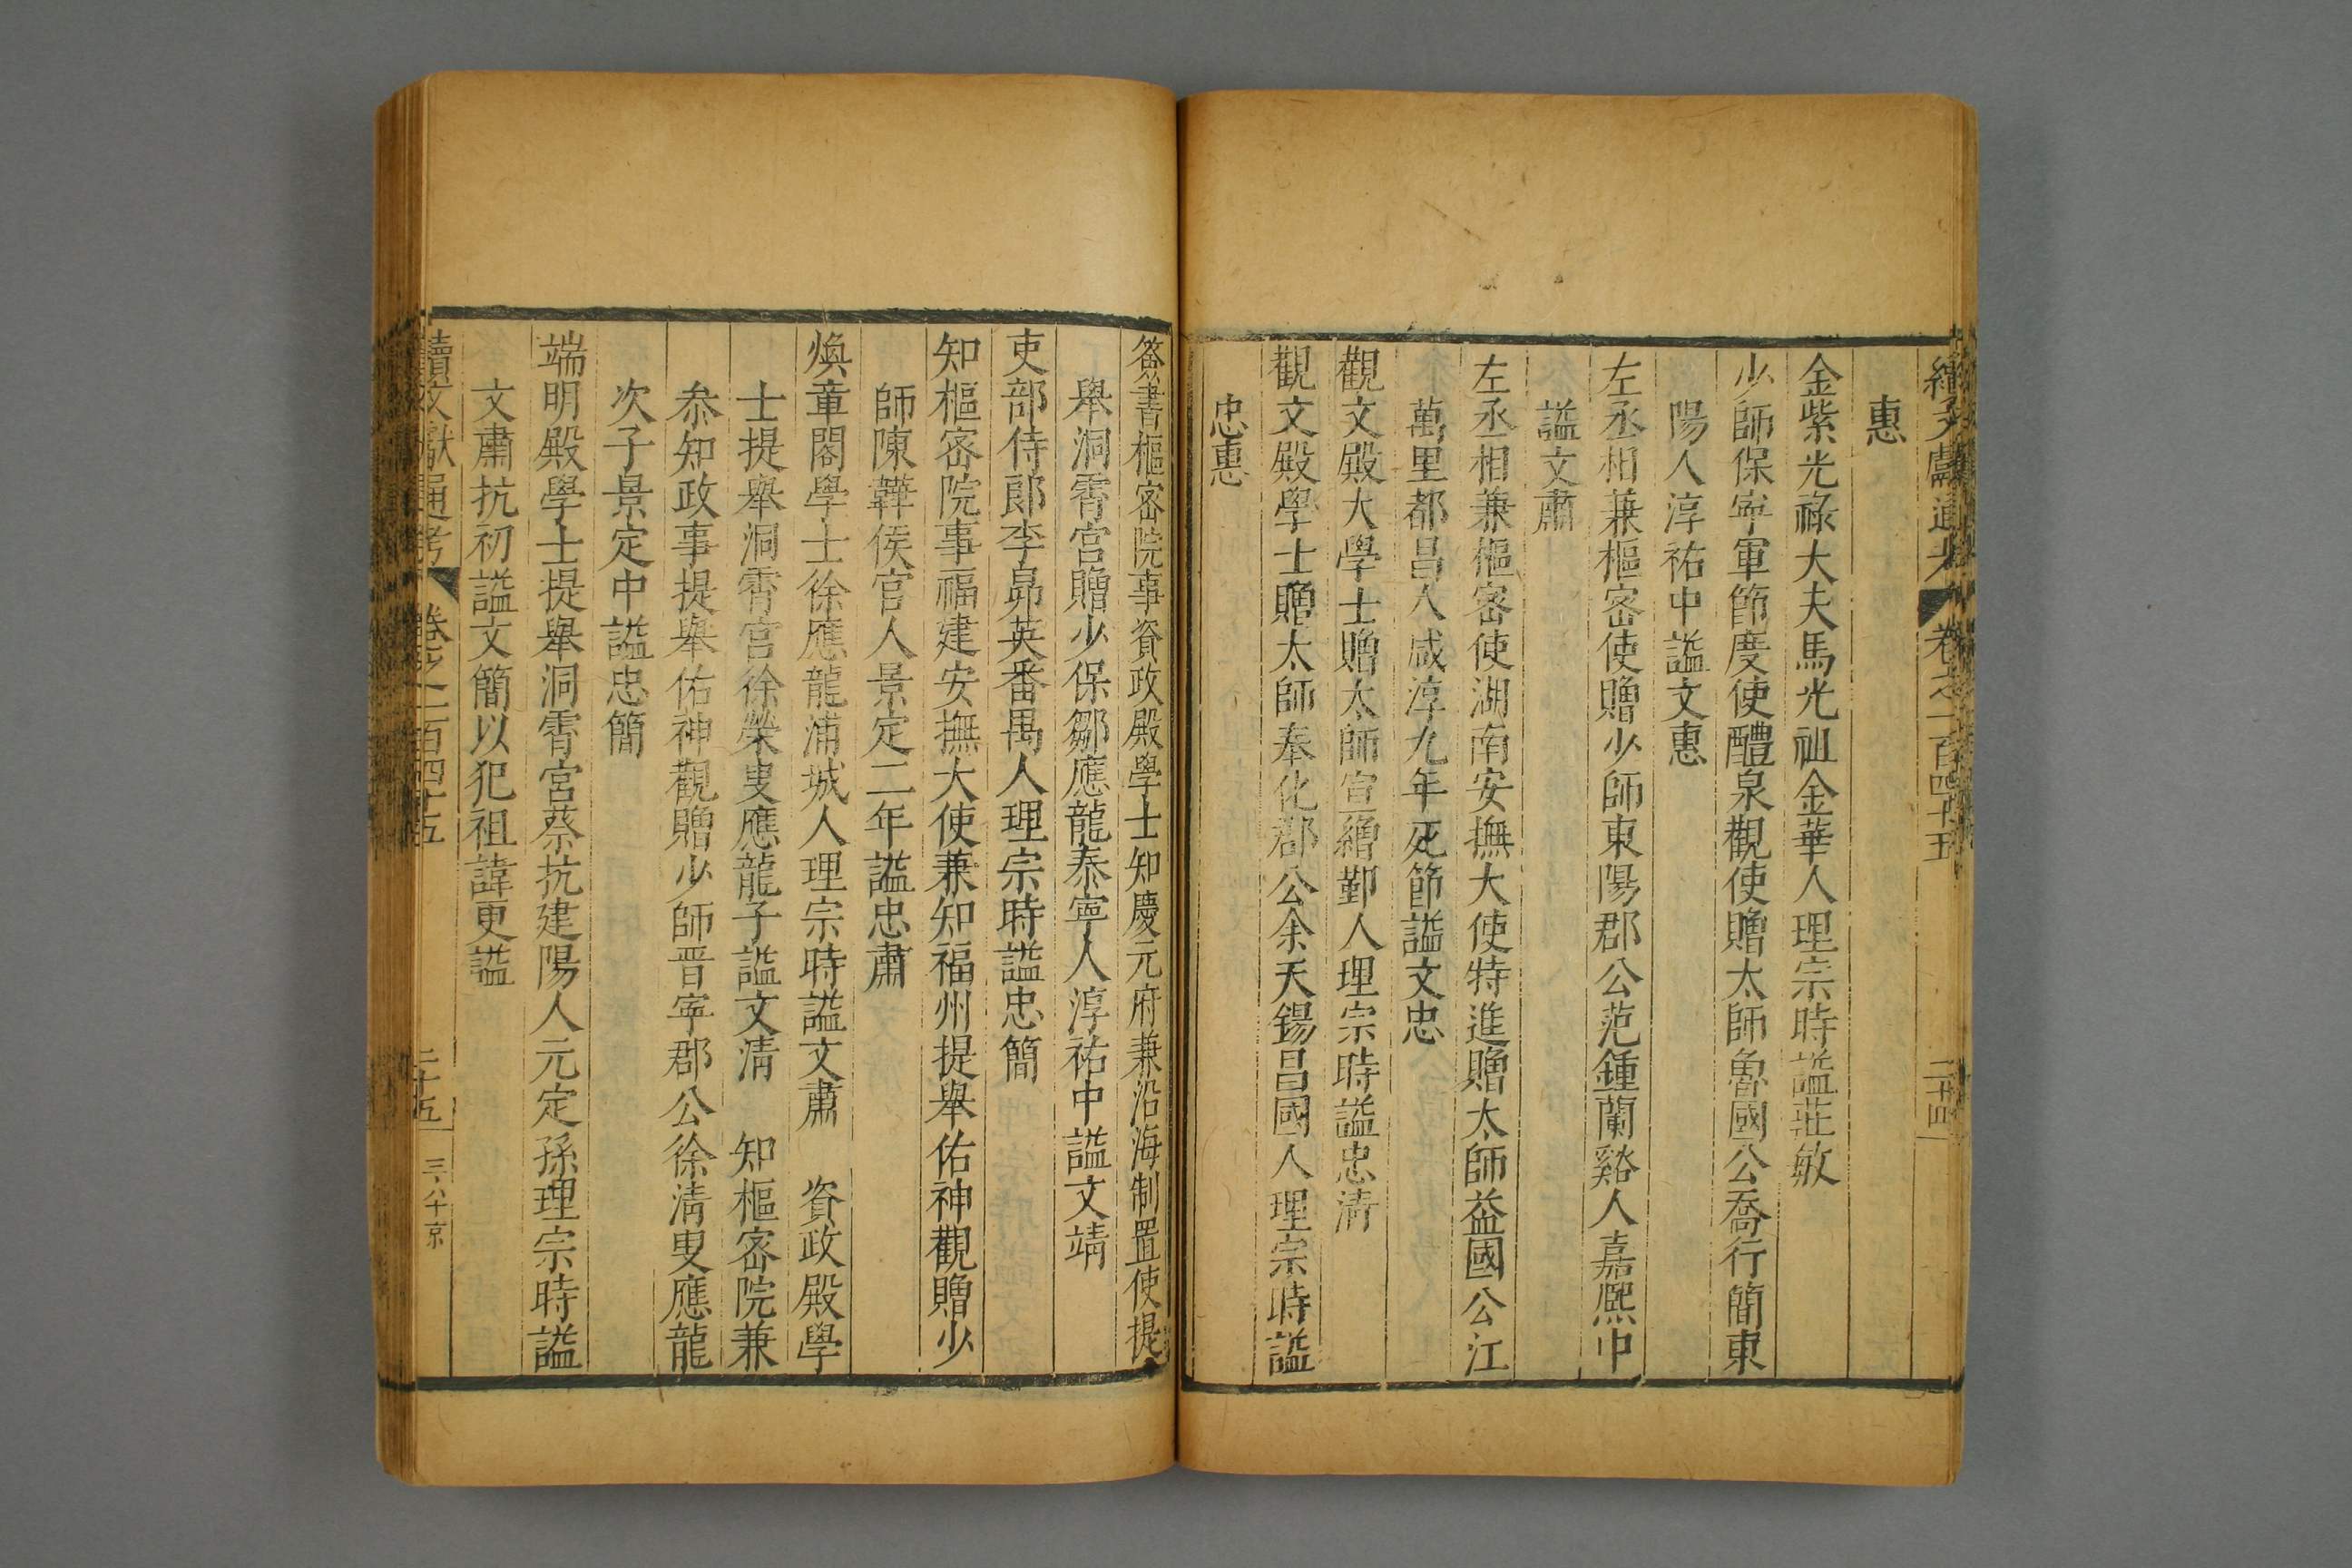 續文獻通考 卷之一百四十五 二十四
惠
金紫光祿大夫馬光祖金華人理宗時謚莊敏
少師保寧軍節度使醴泉觀使贈太師魯國公喬行簡東
陽人淳祐中謚文惠
左丞相兼樞密使贈少師東陽郡公范鍾蘭谿人嘉熈中
謚文肅
左丞相兼樞密使湖南安撫大使特進贈太師益國公江
萬里都昌人咸淳九年死節謚文忠
觀文殿大學士贈太師宣繒鄞人理宗時謚忠清
觀文殿學士贈太師奉化郡公余天錫昌國人理宗時謚
忠惠
簽書樞密院事資政殿學士知慶元府兼沿海制置使提
舉洞霄宮贈少保鄒應龍泰寧人淳祐中謚文靖
吏部侍郎李昴英番禺人理宗時謚忠簡
知樞密院事福建安撫大使兼知福州提舉佑神觀贈少
師陳韡侯官人景定二年謚忠肅
煥章閣學士徐應龍浦城人理宗時謚文肅 資政殿學
士提舉洞霄宮徐榮叟應龍子謚文清 知樞密院兼
叅知政事提舉佑神觀贈少師晋寧郡公徐清叟應龍
次子景定中謚忠簡
端明殿學士提舉洞霄宮蔡抗建陽人元定孫理宗時謚
文肅抗初謚文簡以犯祖諱更謚
續文獻通考 卷之一百四十五 二十五